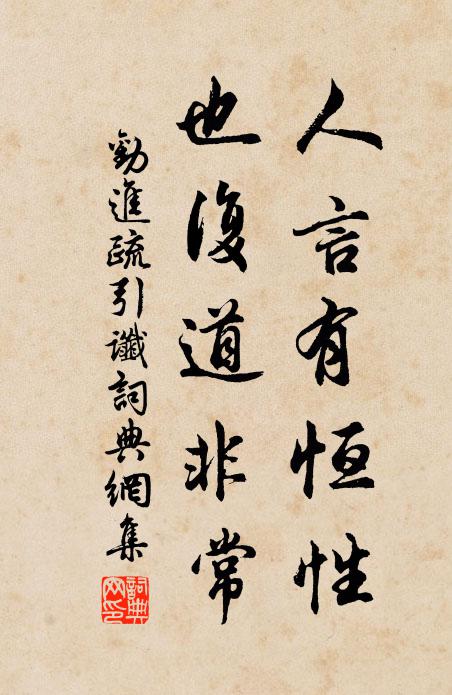 人言有恒性
也復道非常
勸進疏引讖詞典網集
詞典網印